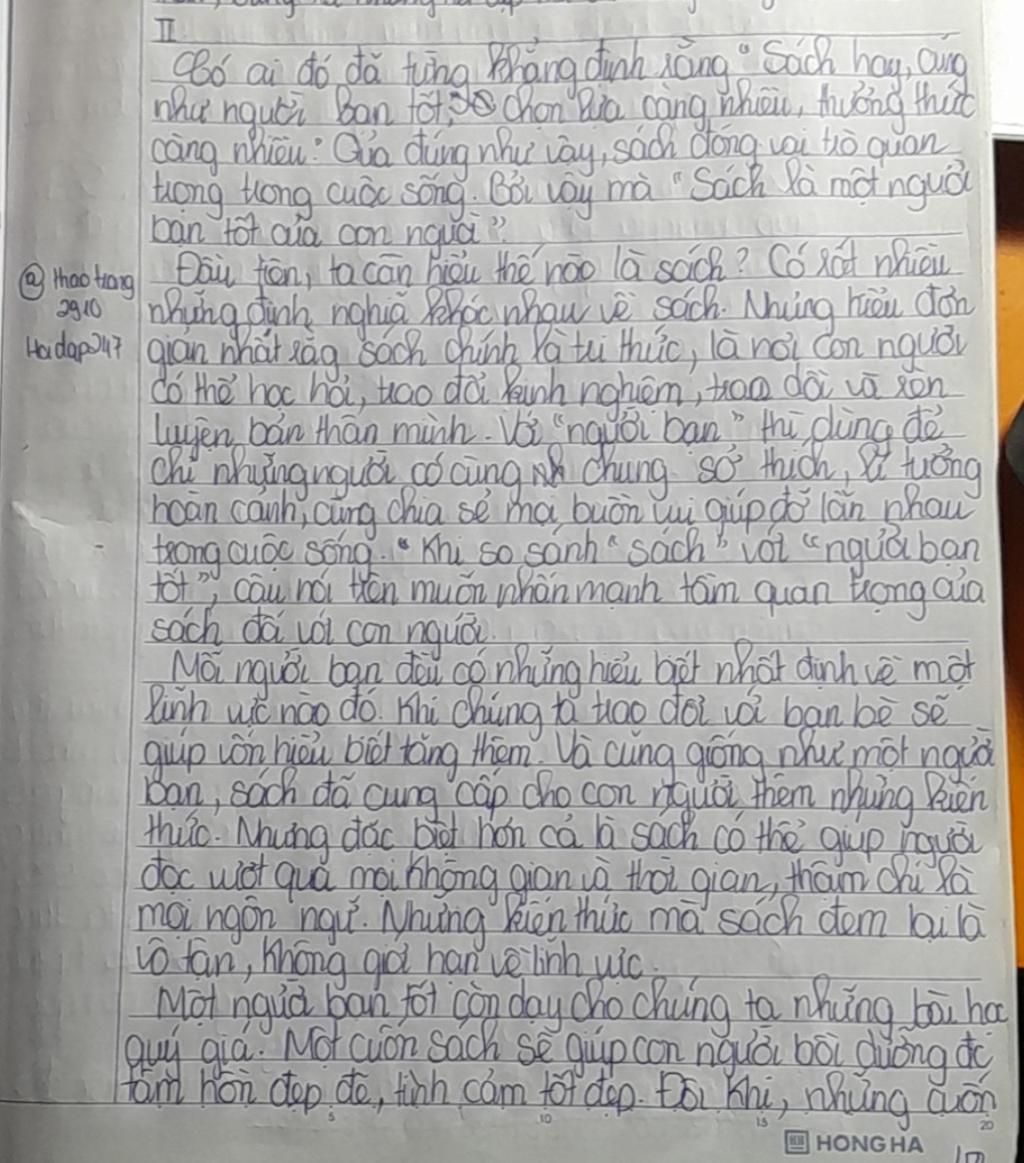 II
Có ai đó đã từng khẳng định rằng "Sách hay, cũng
như người bạn tốt, chọn lựa càng nhiều, thưởng thức
càng nhiều." Qủa đúng như vậy, sách đóng vai trò quan
trọng trong cuộc sống. Bởi vậy mà "Sách là một người
bạn tốt của con người".
Đầu tiên, ta cần hiểu thế nào là sách? Có rất nhiều
những định nghiã khác nhau về sách. Nhưng hiểu đơn
giản nhất rằg sách chính là tri thức, là nơi con người
có thể học hỏi, trao đổi kinh nghiệm, trao dồi và rèn
luyện bản thân mình. Với "người bạn" thì dùng để
chỉ những người có cùng chung sở thích, lí tưởng
hoàn cảnh, cùng chia sẻ mọi buồn vui giúp đỡ lẫn nhau
trong cuộc sống. "Khi so sánh "sách" với "người bạn
tốt", câu nói trên muốn nhấn mạnh tầm quan trọng của
sách đối với con người.
Mỗi người bạn đều có những hiểu biết nhất định về một
lĩnh vực nào đó. Khi chúng ta trao đổi với bạn bè sẽ
giúp vốn hiểu biết tăng thêm. Và cũng giống như một người
bạn, sách đã cung cấp cho con người thêm những kiến
thức. Nhưng đặc biệt hơn cả là sách có thể giúp người
đọc vượt quá mọi không gian và thời gian, thậm chí là
mọi ngôn ngữ. Những kiến thức mà sách đem lại là
vô tận, không giới hạn về lĩnh vực.
Một người bạn tốt còn dạy cho chúng ta những bài học
quý giá. Một cuốn sách sẽ giúp con người bồi dưỡng đc
tâm hồn đẹp đẽ, tình cảm tốt đẹp. Đôi khi, những cuốn
@ thao trang
2910
Hoidap247
5 10 15 20
HONG HA